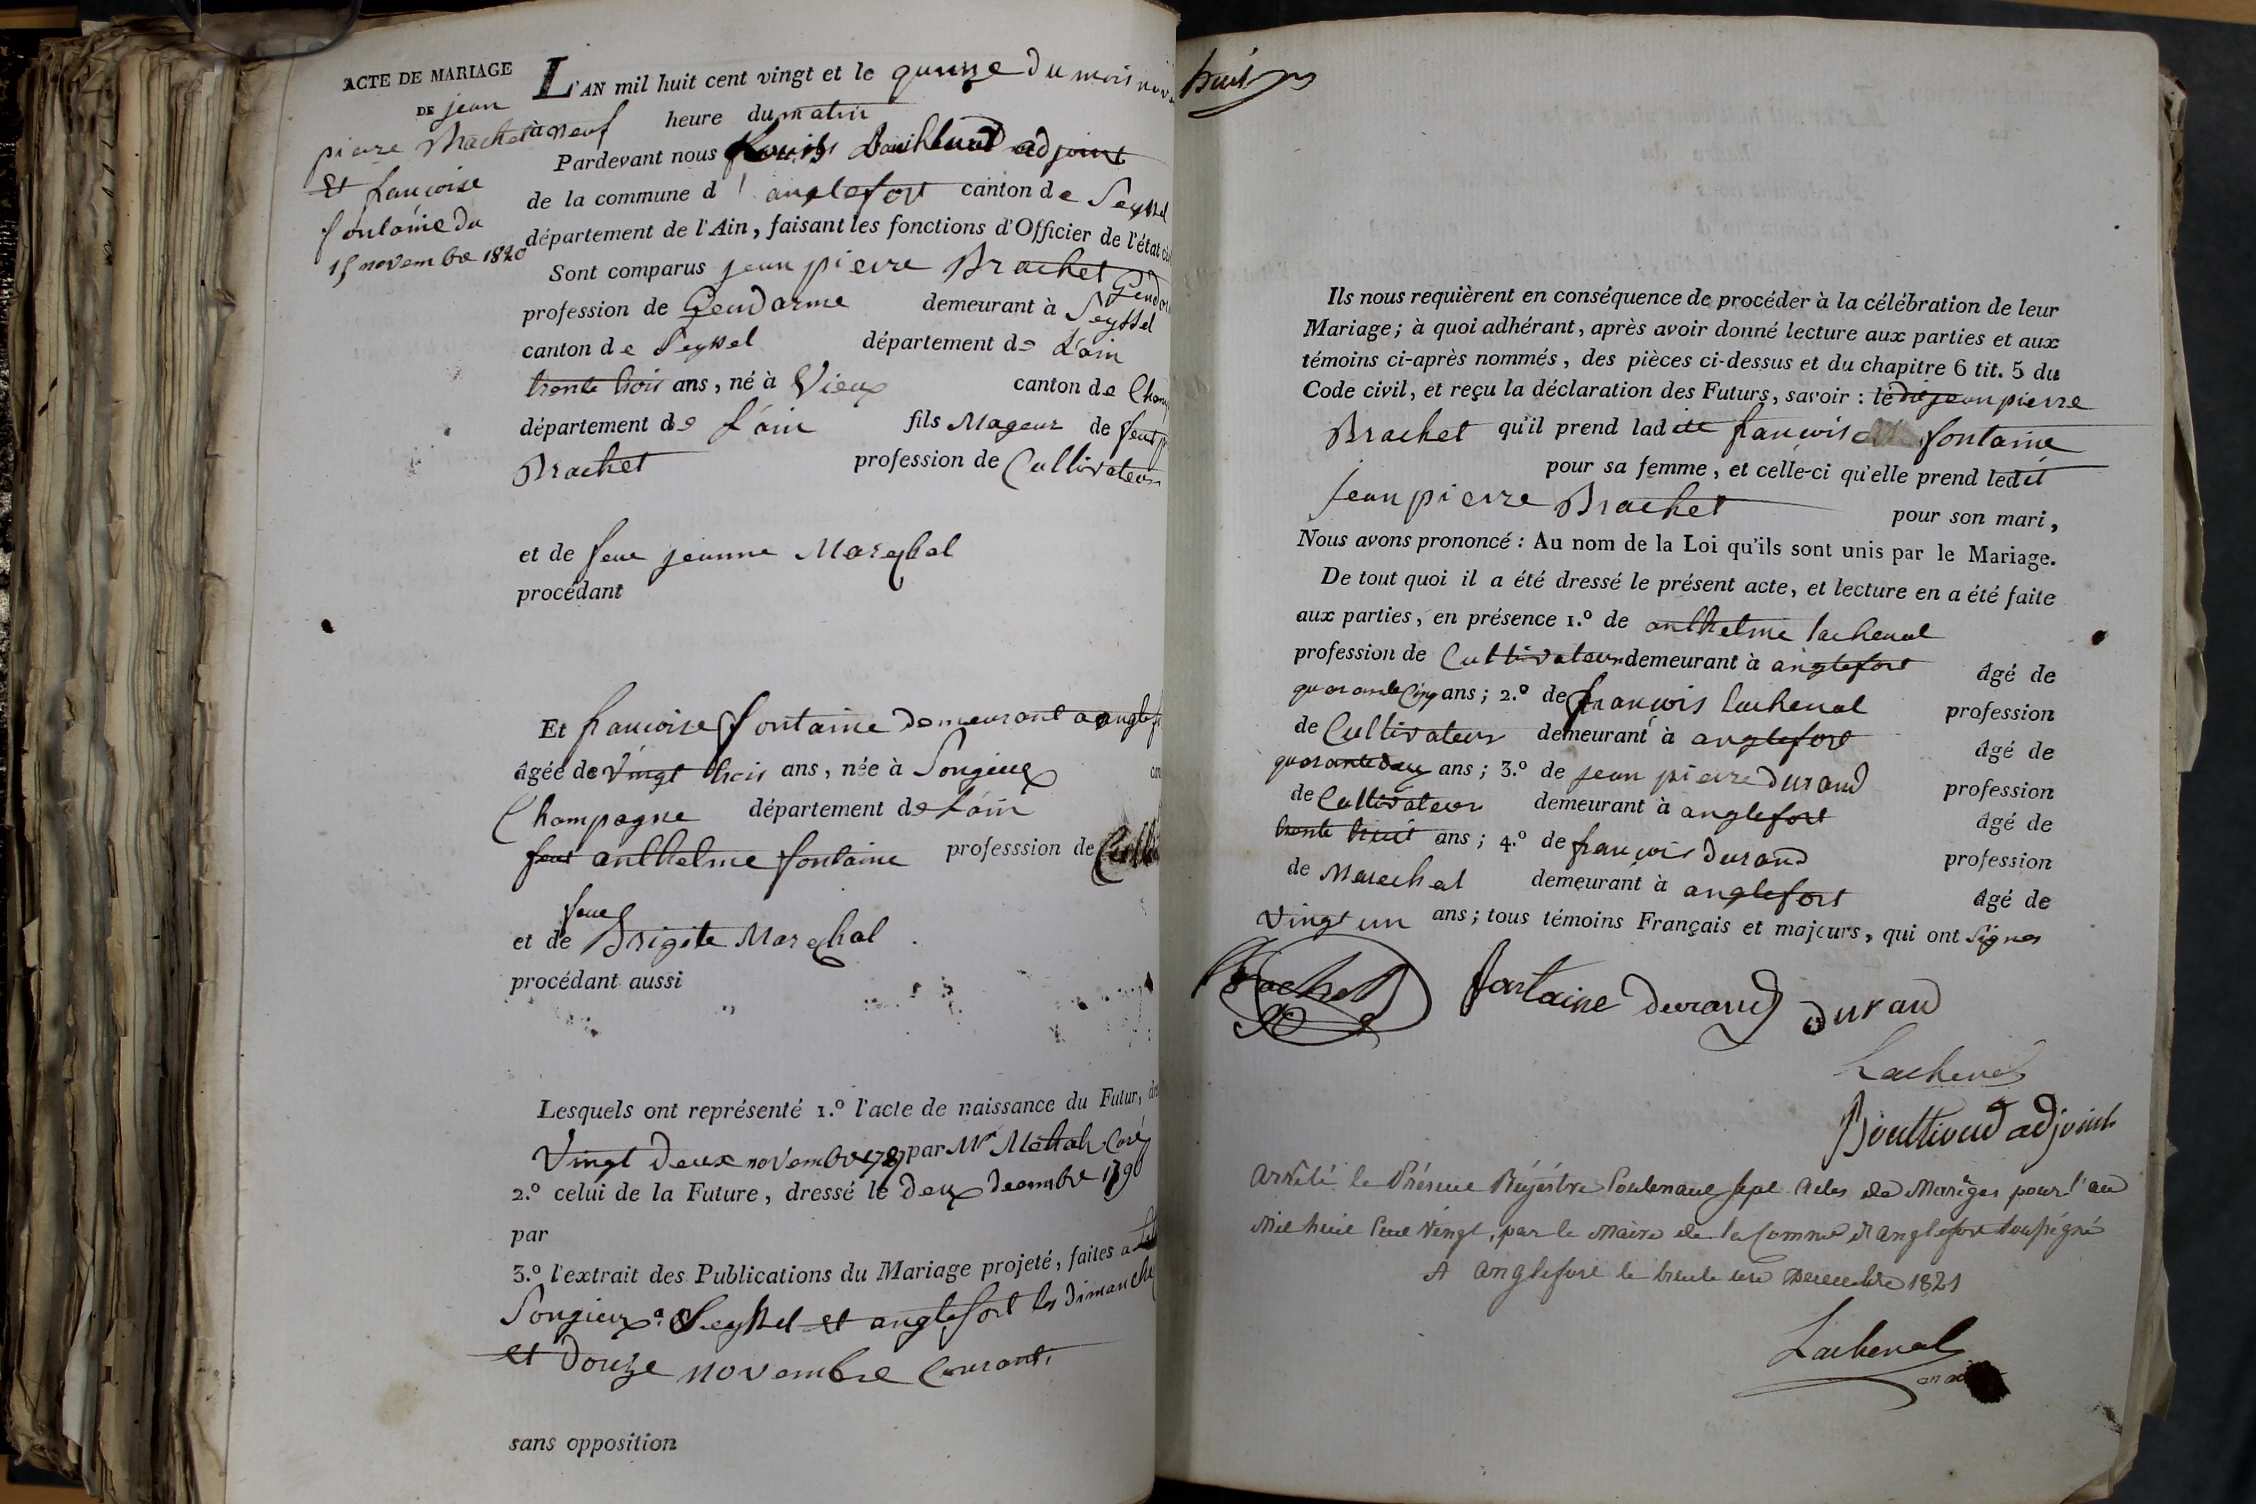 ACTE DE MARIAGE
DE jean
pierre Brachet
Et francoise
fontaine du
15 novembre 1820
L'AN mil huit cent vingt et le quinze du mois
à neuf heure du matin
Pardevant nous adjoint
de la commune d' anglefort canton de Seyssel
département de l'Ain, faisant les fonctions d'Officier de l'état
Sont comparus jean pierre Brachet
profession de Gendarme demeurant à Seyssel
canton de Seyssel département de L'ain
trente trois ans, né à Vieux canton de
département de L'ain fils Mageur de feu
Brachet profession de Cultivateur
et de feue jeanne Marechal
procédant
Et francoise fontaine demeurant a
âgée de vingt trois ans, née à Songieux
Champagne département de L'ain
feut anthelme fontaine professsion de
et de feue Brigite Marechal
procédant aussi
Lesquels ont représenté 1.º l'acte de naissance du Futur,
Vingt deux novembre 1787 par Mr
2.º celui de la Future, dressé le deux decembre
par
3.º l'extrait des Publications du Mariage projeté, faites a
Songieux a Seyssel et anglefort les dimanche
et Douze novembre Courant
sans opposition
huit
Ils nous requièrent en conséquence de procéder à la célébration de leur
Mariage; à quoi adhérant, après avoir donné lecture aux parties et aux
témoins ci-après nommés, des pièces ci-dessus et du chapitre 6 tit. 5 du
Code civil, et reçu la déclaration des Futurs, savoir : le dit jean pierre
Brachet qu'il prend ladite francoise fontaine
pour sa femme, et celle-ci qu'elle prend ledit
jean pierre Brachet pour son mari,
Nous avons prononcé : Au nom de la Loi qu'ils sont unis par le Mariage.
De tout quoi il a été dressé le présent acte, et lecture en a été faite
aux parties, en présence 1.º de anthelme lachenal
profession de Cultivateur demeurant à anglefort âgé de
quarante cinq ans; 2.º de francois lachenal profession
de Cultivateur demeurant à anglefort âgé de
quarante deux ans; 3.º de jean pierre durand profession
de Cultivateur demeurant à anglefort âgé de
trente huit ans; 4.º de francois durand profession
de Marechal demeurant à anglefort âgé de
vingt un ans; tous témoins Français et majeurs, qui ont signes
Brachet fontaine durand durand
Lachenal
adjoint
arrêté le Présent Régistre Contenant sept actes de Mariages pour l'an
Mil huit Cent Vingt, par le Maire de la Comme d'anglefort soussigné
A anglefort le trente un Decembre 1821
Lachenal